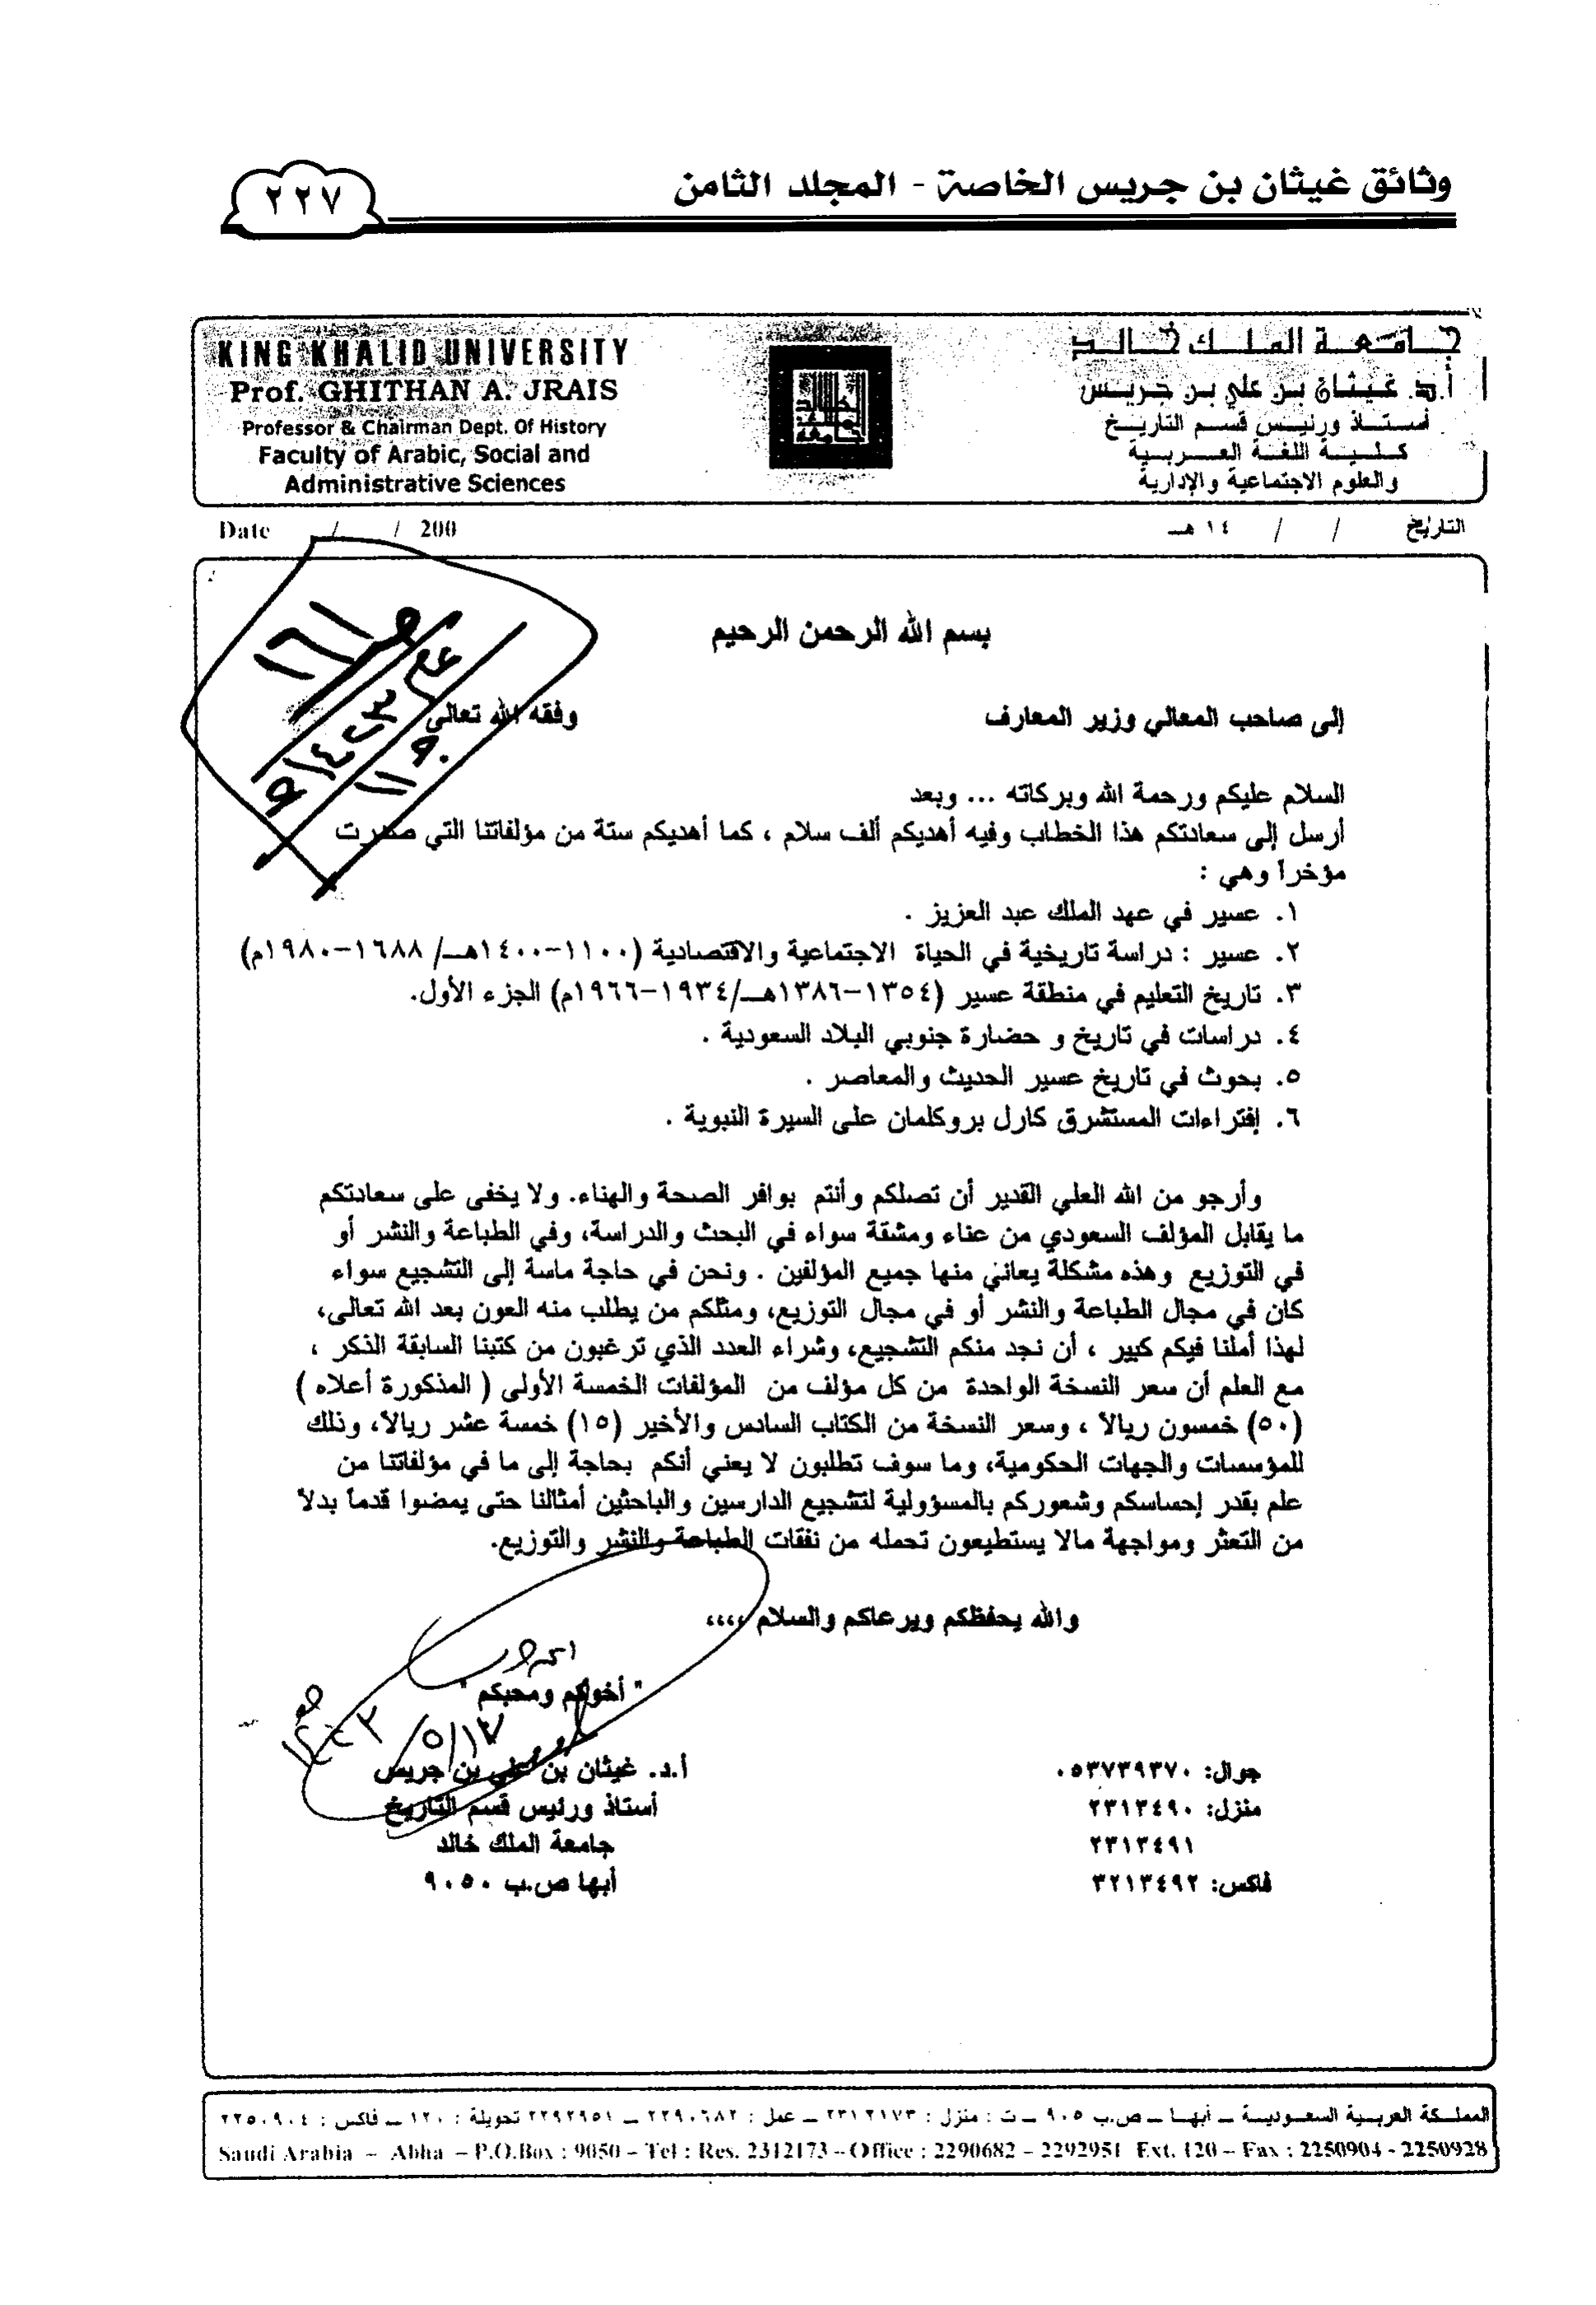 وثائق غيثان بن جريس الخاصة - المجلد الثامن
٢٢٧
جامعة الملك خالد
أ.د. غيثان بن علي بن جريس
أستاذ ورئيس قسم التاريخ
كلية اللغة العربية
والعلوم الاجتماعية والإدارية
KING KHALID UNIVERSITY
Prof. GHITHAN A. JRAIS
Professor & Chairman Dept. Of History
Faculty of Arabic, Social and
Administrative Sciences
التاريخ / / ١٤ هـ
Date / / 200
بسم الله الرحمن الرحيم
إلى صاحب المعالي وزير المعارف وفقه الله تعالى
السلام عليكم ورحمة الله وبركاته ... وبعد
أرسل إلى سعادتكم هذا الخطاب وفيه أهديكم ألف سلام ، كما أهديكم ستة من مؤلفاتنا التي صدرت
مؤخراً وهي :
١. عسير في عهد الملك عبد العزيز .
٢. عسير : دراسة تاريخية في الحياة الاجتماعية والاقتصادية (١١٠٠-١٤٠٠هـ/ ١٦٨٨-١٩٨٠م)
٣. تاريخ التعليم في منطقة عسير (١٣٥٤-١٣٨٦هـ/١٩٣٤-١٩٦٦م) الجزء الأول.
٤. دراسات في تاريخ و حضارة جنوبي البلاد السعودية .
٥. بحوث في تاريخ عسير الحديث والمعاصر .
٦. إفتراءات المستشرق كارل بروكلمان على السيرة النبوية .
وأرجو من الله العلي القدير أن تصلكم وأنتم بوافر الصحة والهناء. ولا يخفى على سعادتكم
ما يقابل المؤلف السعودي من عناء ومشقة سواء في البحث والدراسة، وفي الطباعة والنشر أو
في التوزيع وهذه مشكلة يعاني منها جميع المؤلفين . ونحن في حاجة ماسة إلى التشجيع سواء
كان في مجال الطباعة والنشر أو في مجال التوزيع، ومثلكم من يطلب منه العون بعد الله تعالى،
لهذا أملنا فيكم كبير ، أن نجد منكم التشجيع، وشراء العدد الذي ترغبون من كتبنا السابقة الذكر ،
مع العلم أن سعر النسخة الواحدة من كل مؤلف من المؤلفات الخمسة الأولى ( المذكورة أعلاه )
(٥٠) خمسون ريالاً ، وسعر النسخة من الكتاب السادس والأخير (١٥) خمسة عشر ريالاً، وذلك
للمؤسسات والجهات الحكومية، وما سوف تطلبون لا يعني أنكم بحاجة إلى ما في مؤلفاتنا من
علم بقدر إحساسكم وشعوركم بالمسؤولية لتشجيع الدارسين والباحثين أمثالنا حتى يمضوا قدماً بدلاً
من التعثر ومواجهة مالا يستطيعون تحمله من نفقات الطباعة والنشر والتوزيع.
والله يحفظكم ويرعاكم والسلام ،،،،
" أخوكم ومحبكم "
أ.د. غيثان بن علي بن جريس
أستاذ ورئيس قسم التاريخ
جامعة الملك خالد
أبها ص.ب ٩٠٥٠
جوال: ٠٥٣٧٣٩٣٧٠
منزل: ٢٣١٣٤٩٠
٢٣١٣٤٩١
فاكس: ٣٢١٣٤٩٢
المملكة العربية السعودية – أبها – ص.ب ٩٠٥ – ت : منزل : ٢٣١٢١٧٣ – عمل : ٢٢٩٠٦٨٢ – ٢٢٩٢٩٥١ تحويلة : ١٢٠ – فاكس : ٢٢٥٠٩٠٤
Saudi Arabia – Abha – P.O.Box : 9050 – Tel : Res. 2312173 – Office : 2290682 – 2292951 Ext. 120 – Fax : 2250904 - 2250928